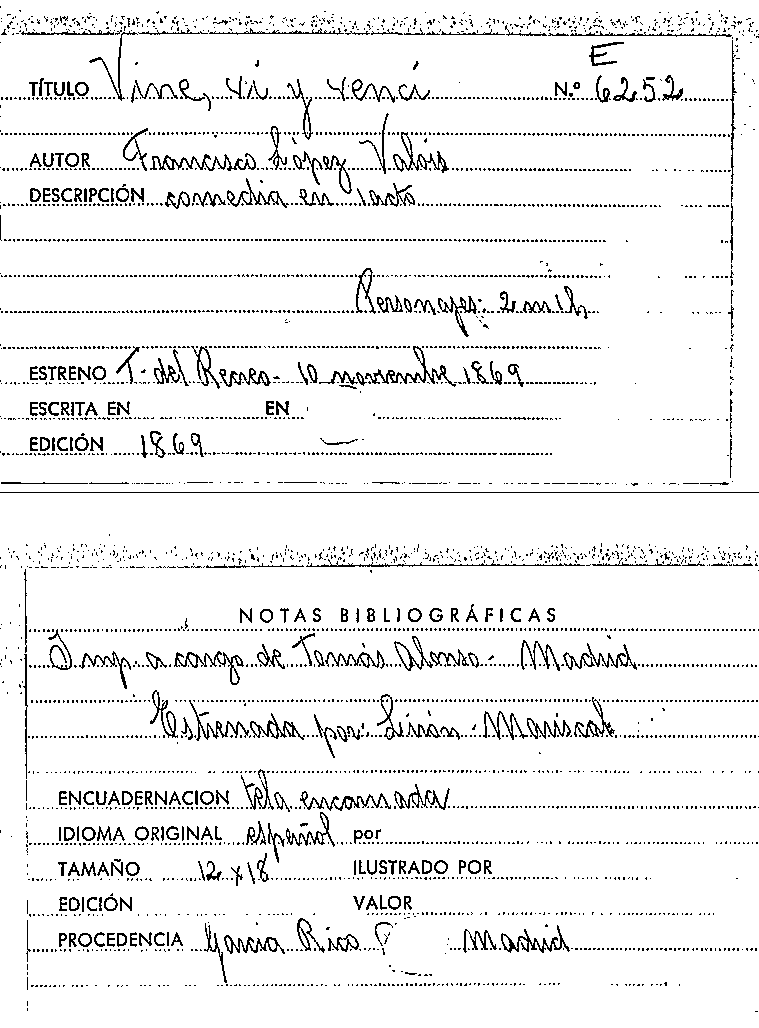 E
TÍTULO Vine, vi y vencí N.º 6252
AUTOR Francisco López Valois
DESCRIPCIÓN comedia en 1 acto
Personajes: 2 m 1 h
ESTRENO T. del Recreo - 10 noviembre 1869
ESCRITA EN EN
EDICIÓN 1869 —
NOTAS BIBLIOGRÁFICAS
Imp. a cargo de Tomás Alonso - Madrid
Estrenada por: - Mariscal
ENCUADERNACION tela encarnada
IDIOMA ORIGINAL español por
TAMAÑO 12 x 18 ILUSTRADO POR
EDICIÓN VALOR
PROCEDENCIA García Rico Madrid